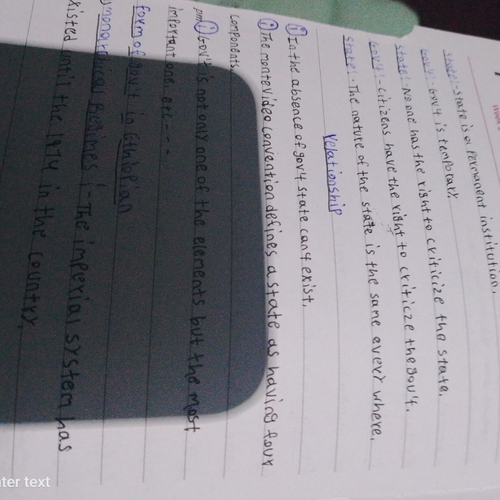 State:- State is a permanent institution.
Gov't:- Gov't is temporary
State:- No one has the right to criticize the state.
Gov't:- citizens have the right to criticize the gov't.
State:- The nature of the state is the same every where.
Relationship
① In the absence of gov't state can't exist.
② The montevideo convention defines a state as having four
components.
① Gov't is not only one of the elements but the most
important one. etc - - -
form of gov't in Ethiopian
monarchical Regimes :- The imperial system has
existed until the 1974 in the country.
ter text